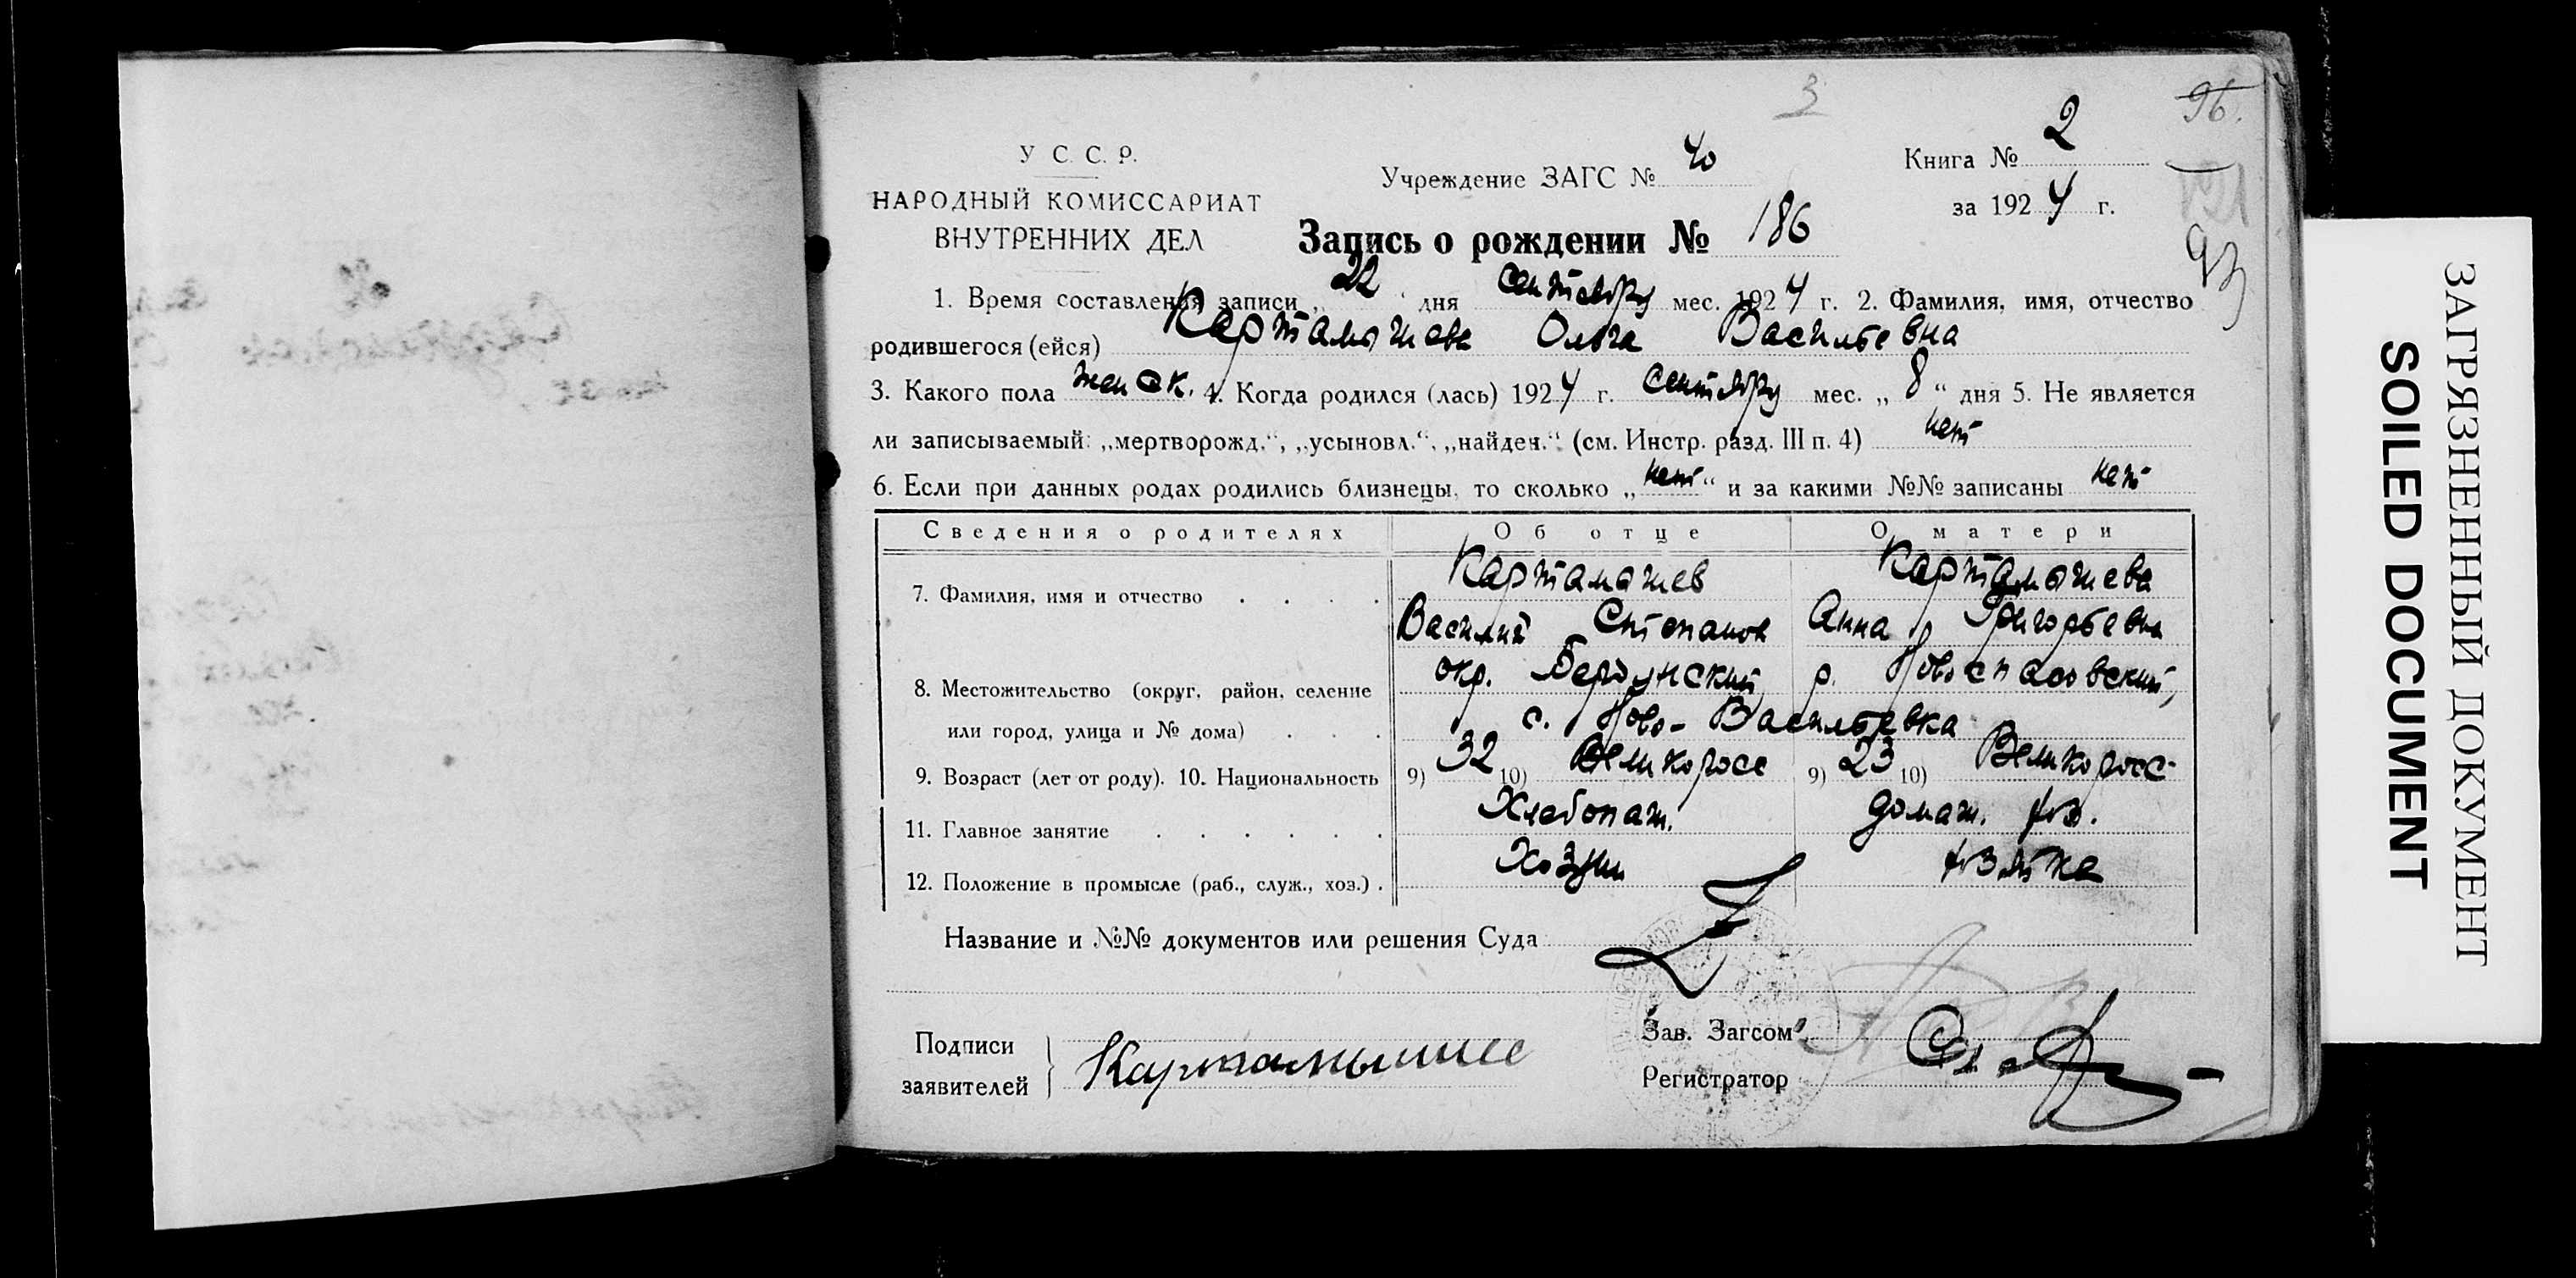 3
96.
У С. С. Р.
Учреждение ЗАГС № 40
Книга № 2
НАРОДНЫЙ КОМИССАРИАТ
ВНУТРЕННИХ ДЕЛ
за 1924 г.
121
93
Запись о рождении № 186
1. Время составления записи „ 22 " дня сентября мес. 1924 г. 2. Фамилия, имя, отчество
родившегося (ейся) Картамышева Ольга Васильевна
3. Какого пола женск. 4. Когда родился (лась) 1924 г. сентября мес. „ 8 “ дня 5. Не является
ли записываемый: „мертворожд.“, „усыновл.“, „найден.“ (см. Инстр. разд. III п. 4) нет
6. Если при данных родах родились близнецы, то сколько „ нет “ и за какими №№ записаны нет
Сведения о родителях Об отце О матери
7. Фамилия, имя и отчество . . . . Картамышев Картамышева
Василий Степанов Анна Григорьевна
8. Местожительство (округ, район, селение окр. Бердянский р. Новоспасовский,
или город, улица и № дома) . . . с. Ново-Васильевка
9. Возраст (лет от роду). 10. Национальность 9) 32 10) Великоросс 9) 23 10) Великоросс
11. Главное занятие . . . . . . Хлебопаш. домаш. хоз.
12. Положение в промысле (раб., служ., хоз.) . Хозяин хозяйка
Название и №№ документов или решения Суда
Подписи
заявителей
Картамышев
Зав. Загсом
Регистратор
ЗАГРЯЗНЕННЫЙ ДОКУМЕНТ
SOILED DOCUMENT